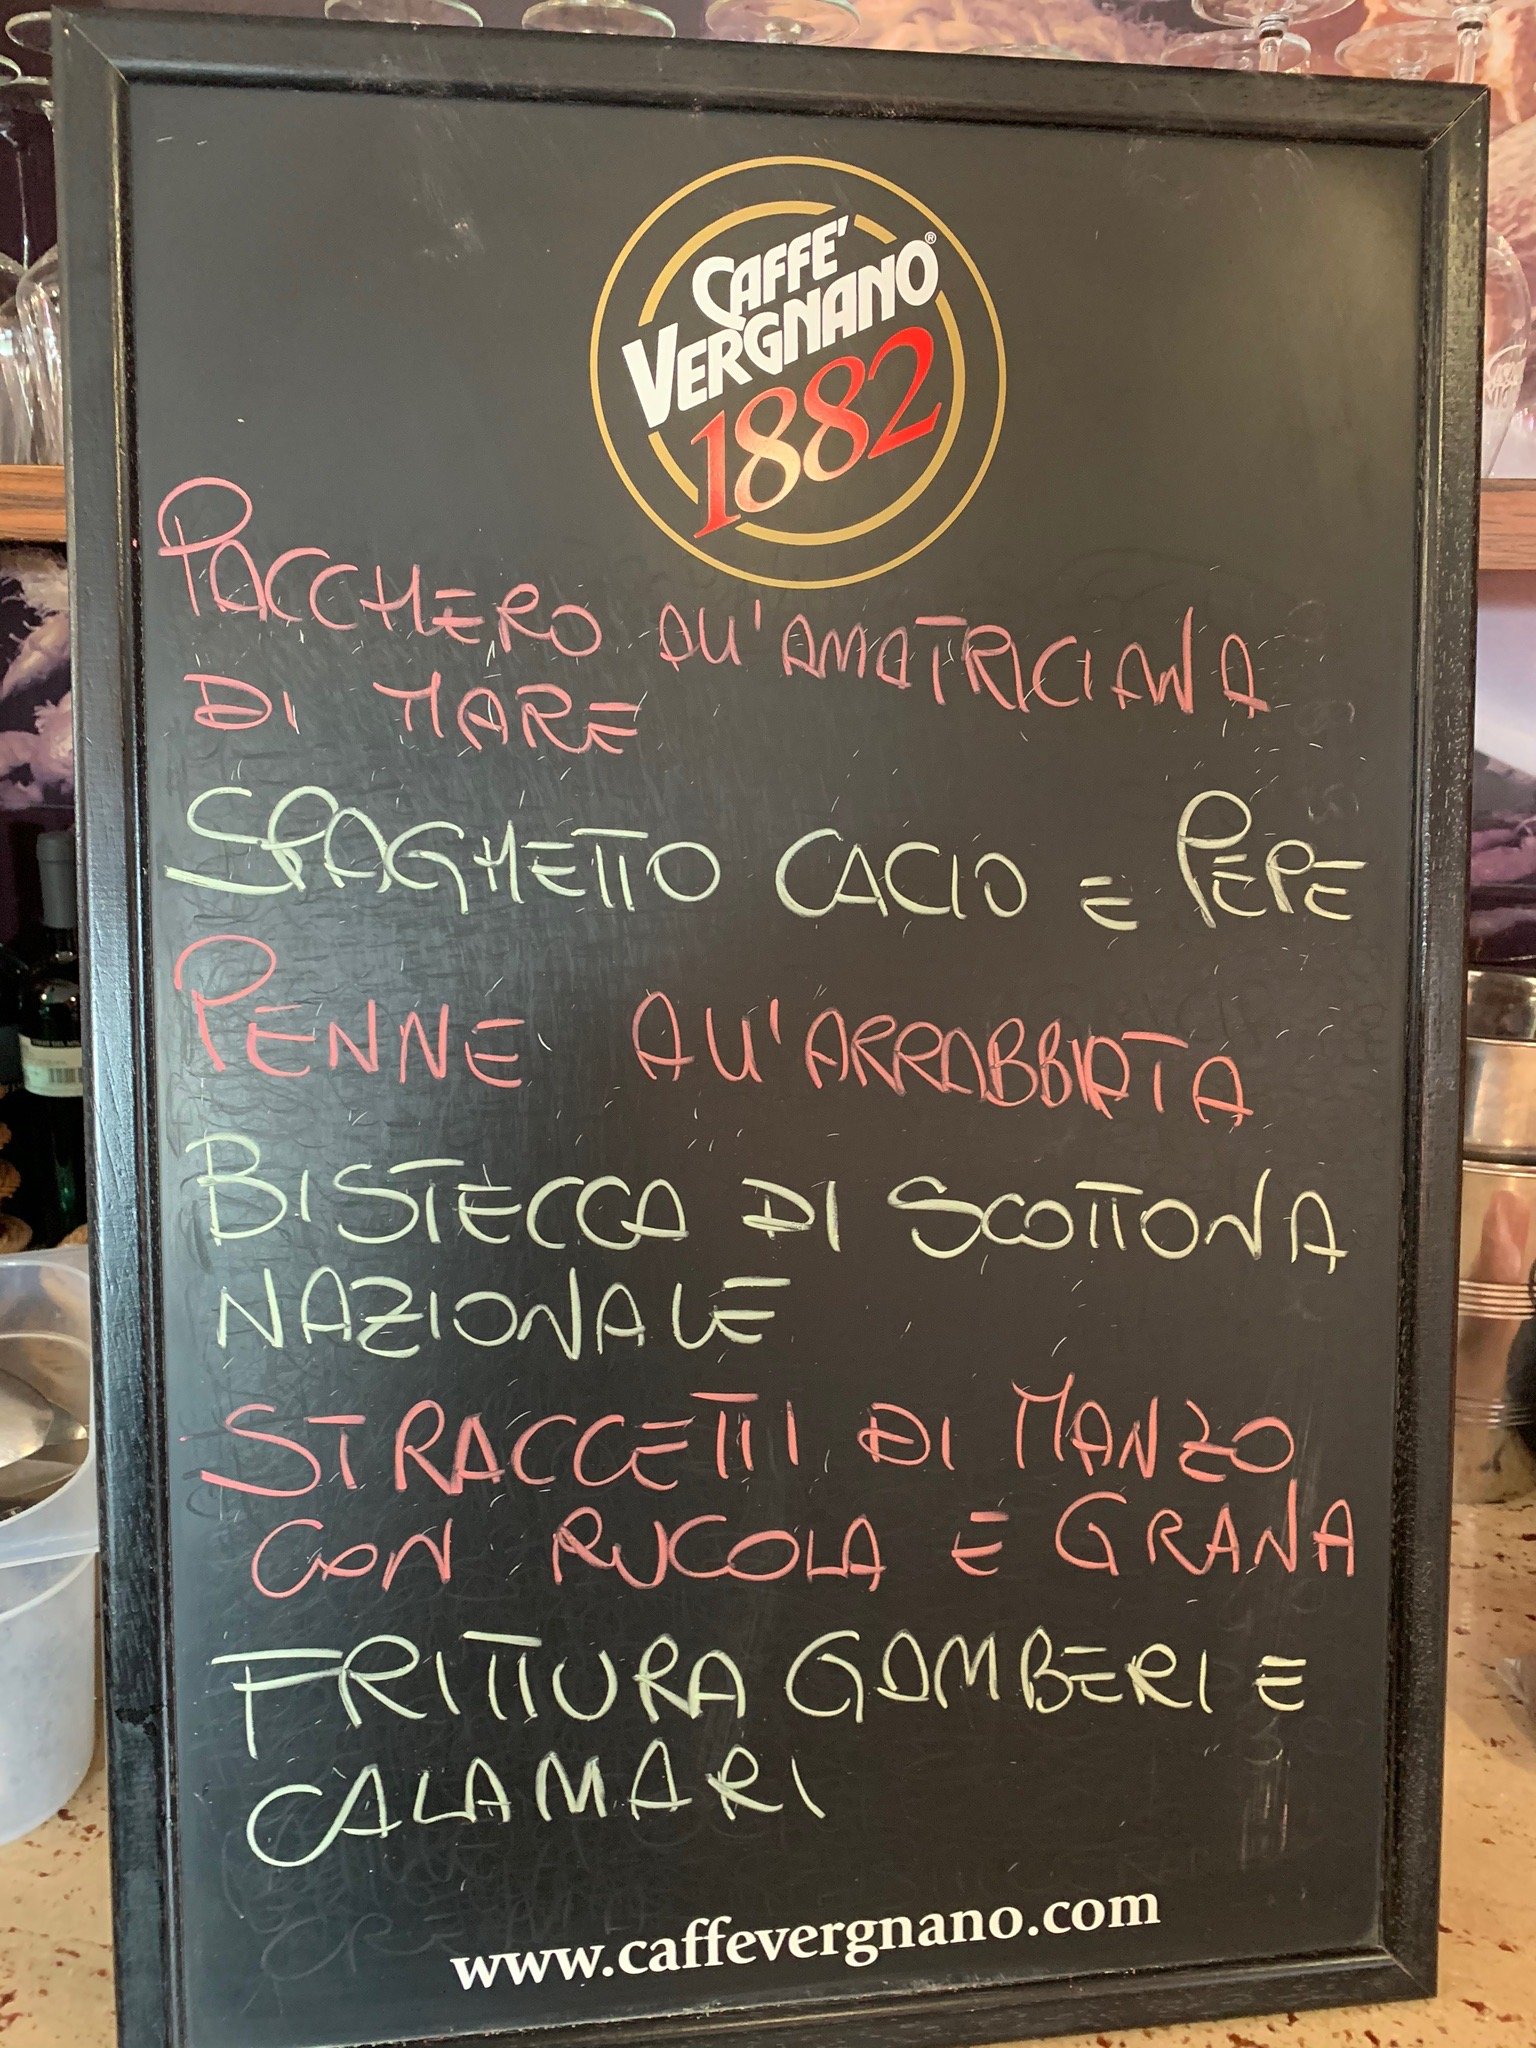 CAFFE'
VERGNANO®
1882
PACCHERO ALL'AMATRICIANA
DI MARE
SPAGHETTO CACIO E PEPE
PENNE ALL'ARRABBIATA
BISTECCA DI SCOTTONA
NAZIONALE
STRACCETTI DI MANZO
CON RUCOLA E GRANA
FRITTURA GAMBERI E
CALAMARI
www.caffevergnano.com